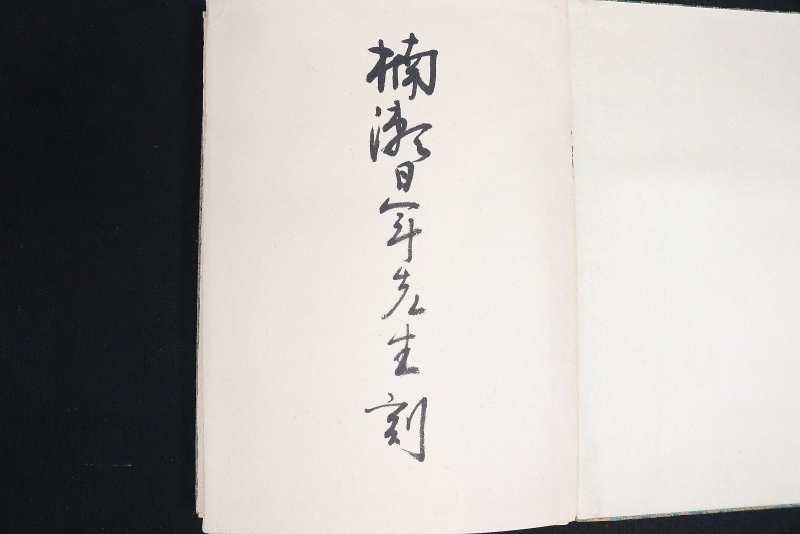 楠瀬日年先生刻